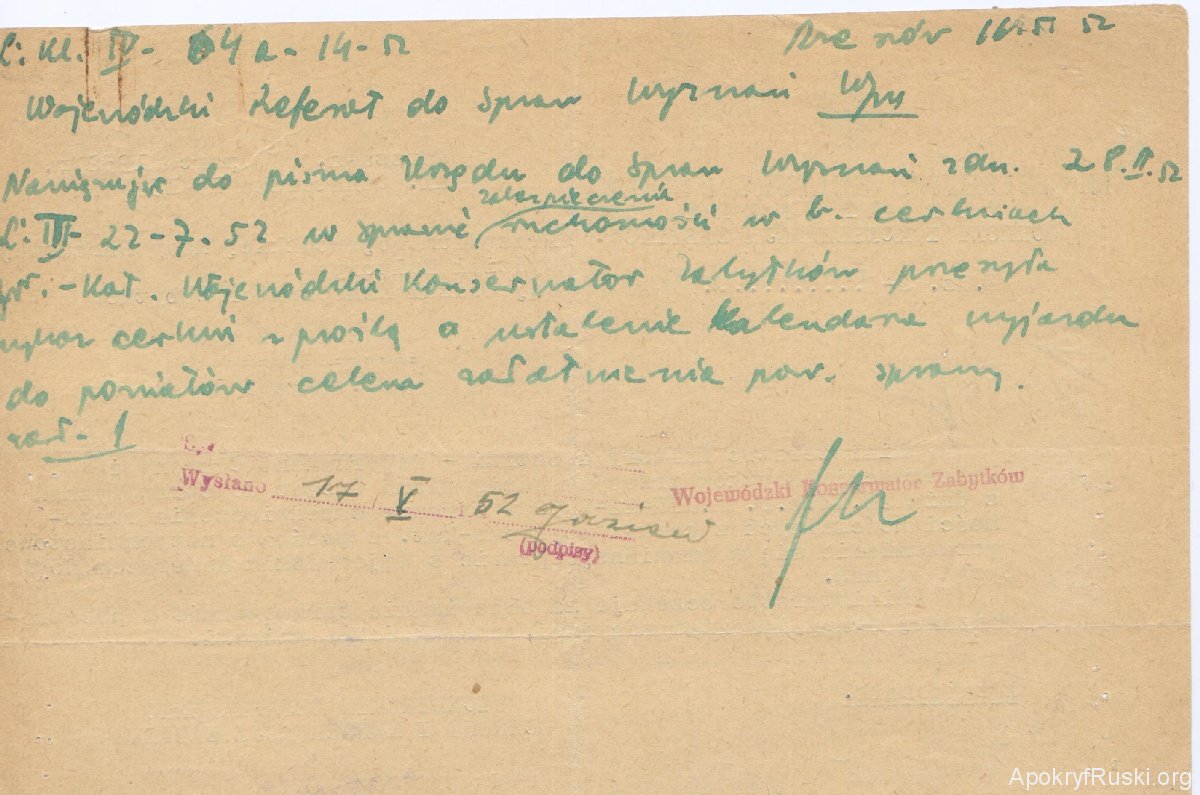 L: Kl. IV- 4a-14-52 Rzeszów 52
Wojewódzki Referat do Spraw Wyznań w/m
Nawiązując do pisma Urzędu do Spraw Wyznań z dn. 28.II.52
L: III- 22-7-52 w sprawie zabezpieczenia ruchomości w b. cerkwiach
gr.-kat. Wojewódzki Konserwator Zabytków przesyła
wykaz cerkwi z prośbą o ustalenie kalendarza wyjazdu
do powiatów celem załatwienia pow. sprawy.
zał- 1
Wysłano 17 / V i 52
Wojewódzki Konserwator Zabytków
(podpisy)
ApokryfRuski.org